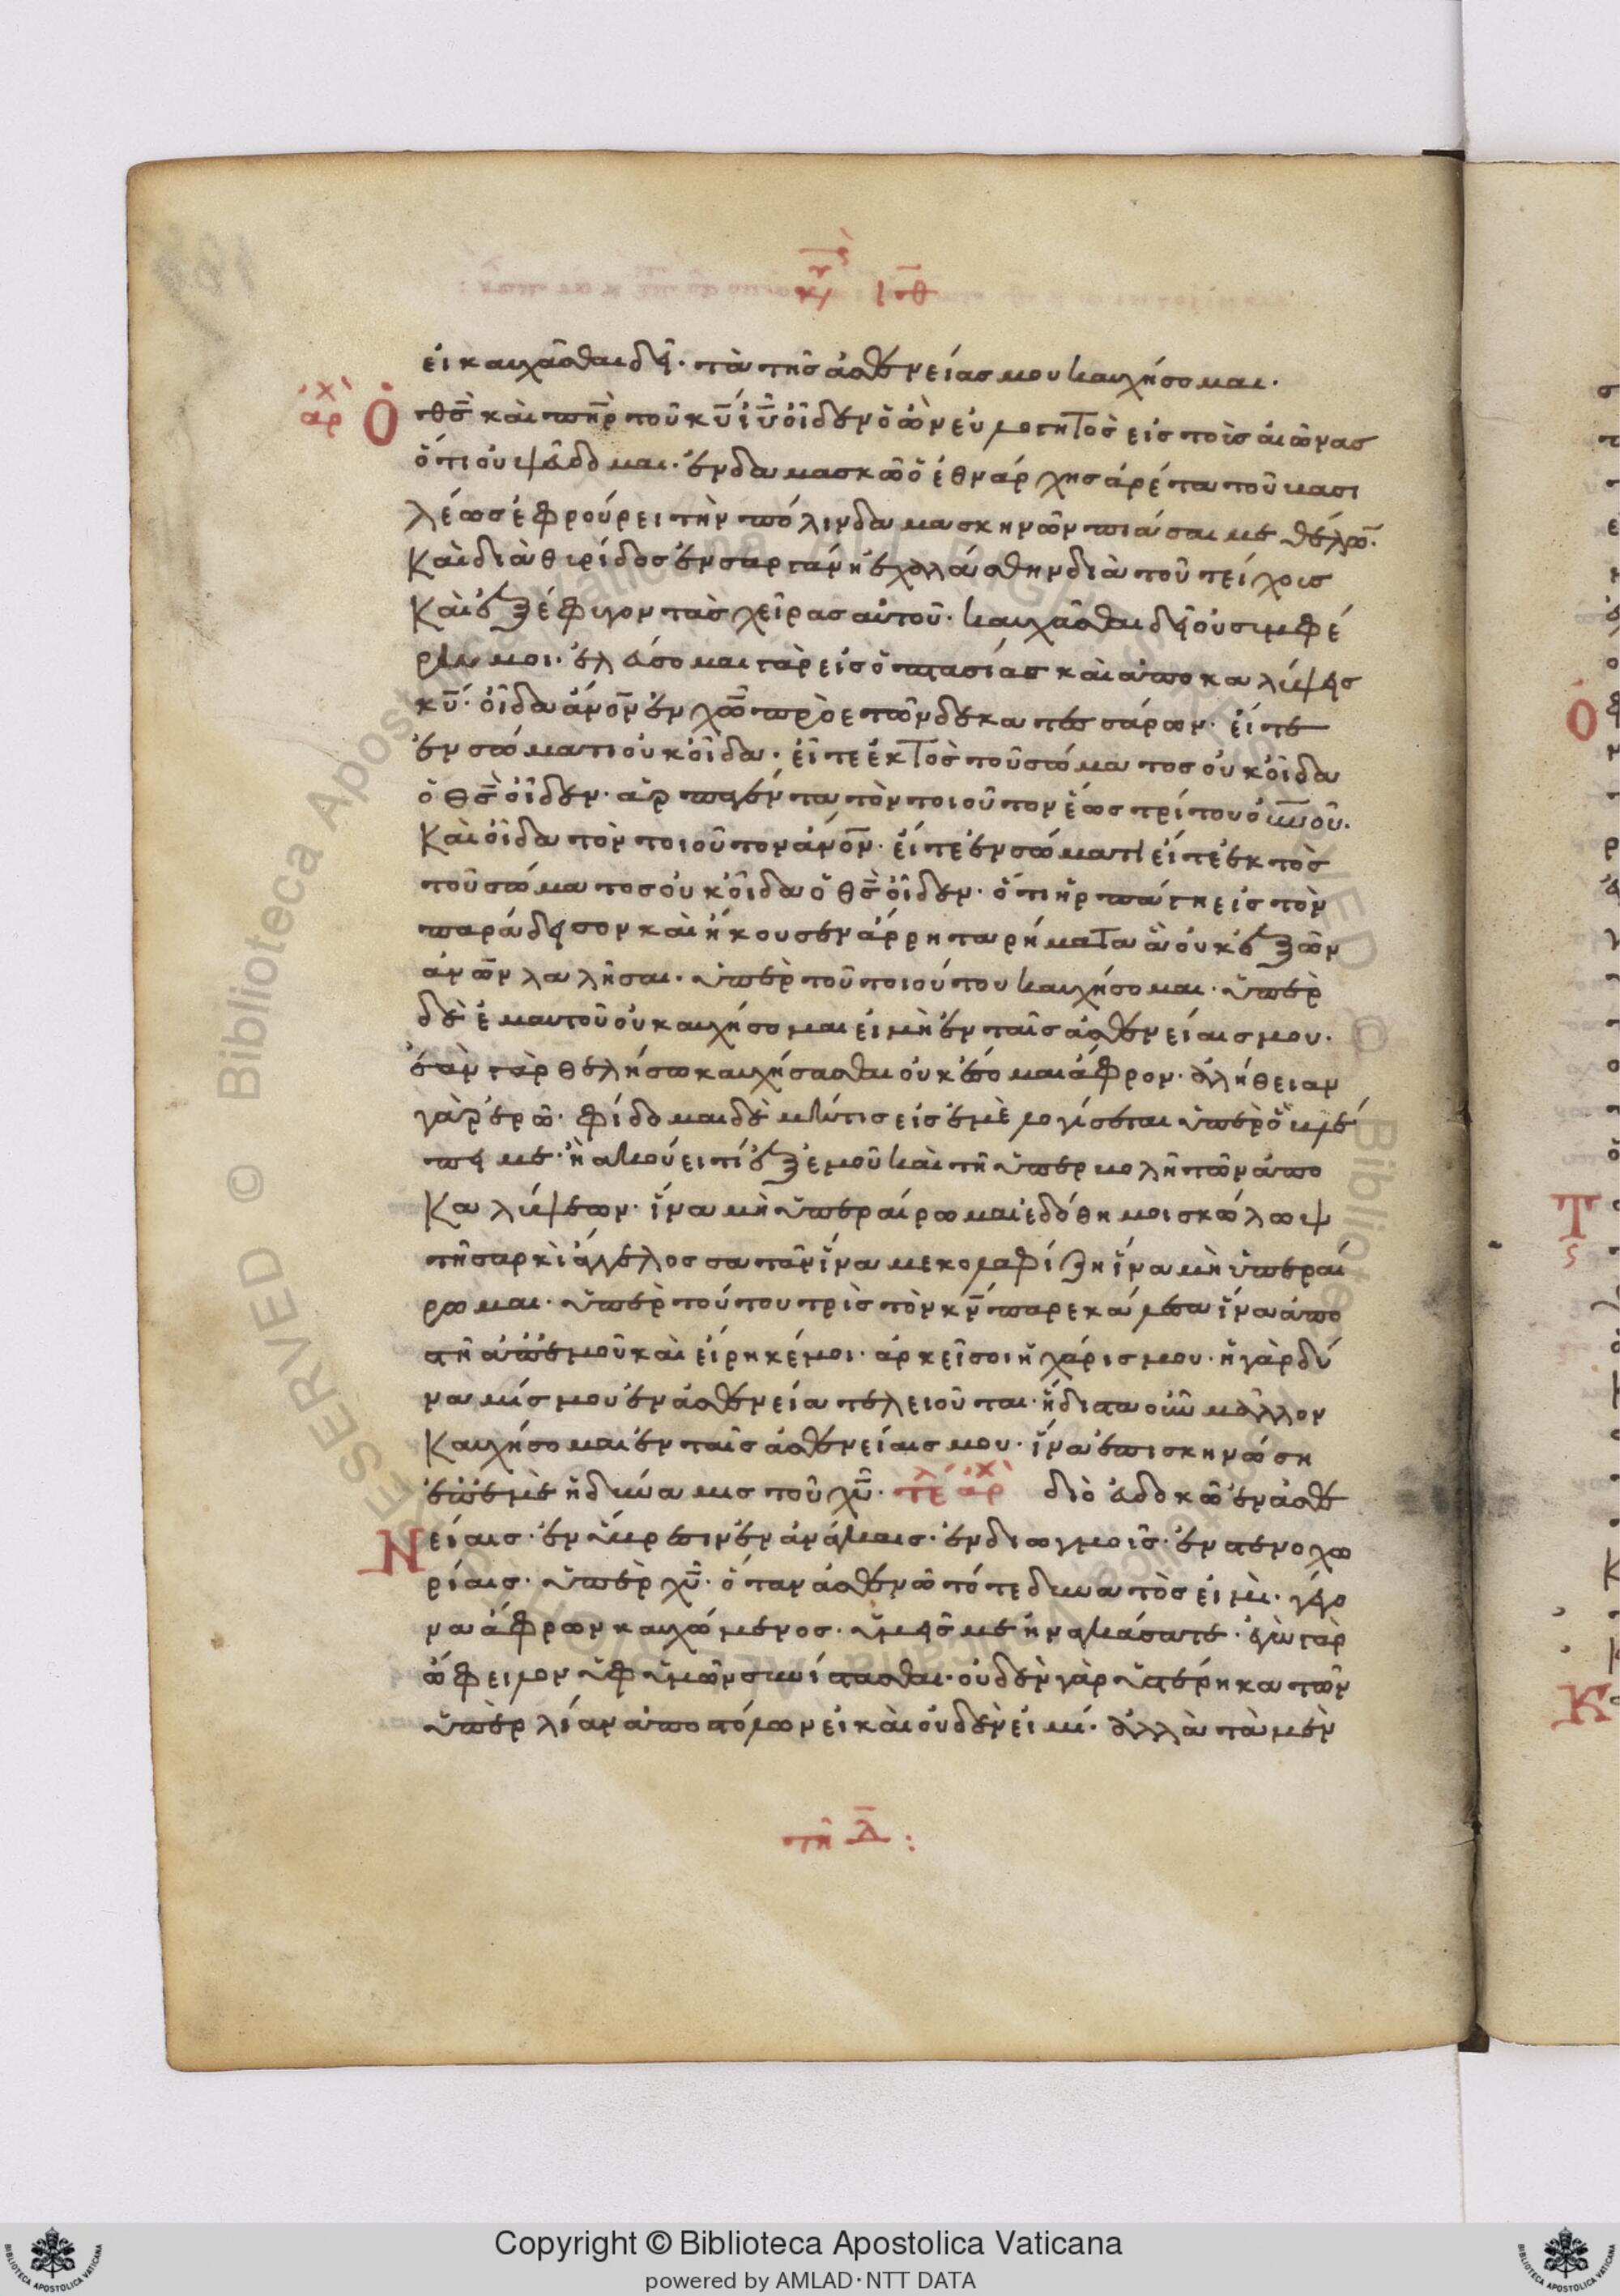 κυ ιθ
εἰ καυχᾶσθαι δεῖ· τὰ τῆς ἀσθενείας μου καυχήσομαι·
αρχ Ὁ θς καὶ πηρ τοῦ κυ ιυ οἶδεν ὁ ὢν εὐλογητὸς εἰς τοὺς αἰῶνας
ὅτι οὐ ψεύδομαι· ἐν δαμασκῶ ὁ ἐθνάρχης ἀρέτα τοῦ βασι
λέως ἐφρούρει τὴν πόλιν δαμασκηνῶν πιάσαι με θέλων·
καὶ διὰ θυρίδος ἐν σαργάνη ἐχαλάσθην διὰ τοῦ τείχους
καὶ ἐξέφυγον τὰς χεῖρας αὐτοῦ· καυχᾶσθαι δεῖ οὐ συμφέ
ρει μοι· ἐλεύσομαι γὰρ εἰς ὀπτασίας καὶ ἀποκαλύψεις
κυ· οἶδα ἀνον ἐν χω πρὸ ἐτῶν δεκατεσσάρων· εἴτε
ἐν σώματι οὐκ οἶδα· εἴτε ἐκτὸς τοῦ σώματος οὐκ οἶδα
ὁ θς οἶδεν· ἁρπαγέντα τὸν τοιοῦτον ἕως τρίτου ουνου·
καὶ οἶδα τὸν τοιοῦτον ἀνον· εἴτε ἐν σώματι εἴτε ἐκτὸς
τοῦ σώματος οὐκ οἶδα ὁ θς οἶδεν· ὅτι ἡρπάγη εἰς τὸν
παράδεισον καὶ ἤκουσεν ἄρρητα ρήματα ἃ οὐκ ἐξὸν
ἀνων λαλῆσαι· ὑπὲρ τοῦ τοιούτου καυχήσομαι· ὑπὲρ
δὲ ἐμαυτοῦ οὐ καυχήσομαι εἰ μὴ ἐν ταῖς ἀσθενείαις μου·
ἐὰν γὰρ θελήσω καυχήσασθαι οὐκ ἔσομαι ἄφρον· ἀλήθειαν
γὰρ ἐρῶ· φίδομαι δὲ μήτις εἰς ἐμὲ λογίσεται ὑπὲρ ὃ βλέ
πει με· ἢ ἀκούει τί ἐξ ἐμοῦ καὶ τῆ ὑπερβολῆ τῶν ἀπο
καλύψεων· ἵνα μὴ ὑπεραίρωμαι ἐδόθη μοι σκώλωψ
τῆ σαρκὶ ἄγγελος σατᾶν ἵνα με κολαφίζη ἵνα μὴ ὑπεραί
ρωμαι· ὑπὲρ τούτου τρὶς τὸν κν παρεκάλεσα ἵνα ἀπο
στῆ ἀπ' ἐμοῦ καὶ εἴρηκέ μοι· ἀρκεῖ σοι ἡ χάρις μου· ἡ γὰρ δύ
ναμίς μου ἐν ἀσθενεία τελειοῦται· ἥδιστα οὖν μᾶλλον
καυχήσομαι ἐν ταῖς ἀσθενείαις μου· ἵνα ἐπισκηνώση
ἐπ' ἐμὲ ἡ δύναμις τοῦ χυ· τελ αρχ διὸ εὐδοκῶ ἐν ἀσθε
Νείαις· ἐν ὕβρεσιν ἐν ἀνάγκαις· ἐν διωγμοῖς· ἐν στενοχω
ρίαις· ὑπὲρ χυ· ὅταν ἀσθενῶ τότε δυνατὸς εἰμὶ· γέγο
να ἄφρων καυχώμενος· ὑμεῖς με ἠναγκάσατε· ἐγὼ γὰρ
ὤφειλον ὑφ' ὑμῶν συνίστασθαι· οὐδὲν γὰρ ὑστέρηκα τῶν
ὑπὲρ λίαν ἀποστόλων εἰ καὶ οὐδέν εἰμι· ἀλλὰ τὰ μὲν
τῆ Δ :